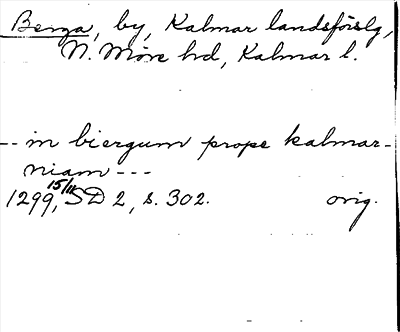 Berga, by, Kalmar landsförslg,
N. Möre hd, Kalmar l.
-- in biergum prope kalmar-
niam ---
1299, 15/11 SD 2, s. 302. orig.